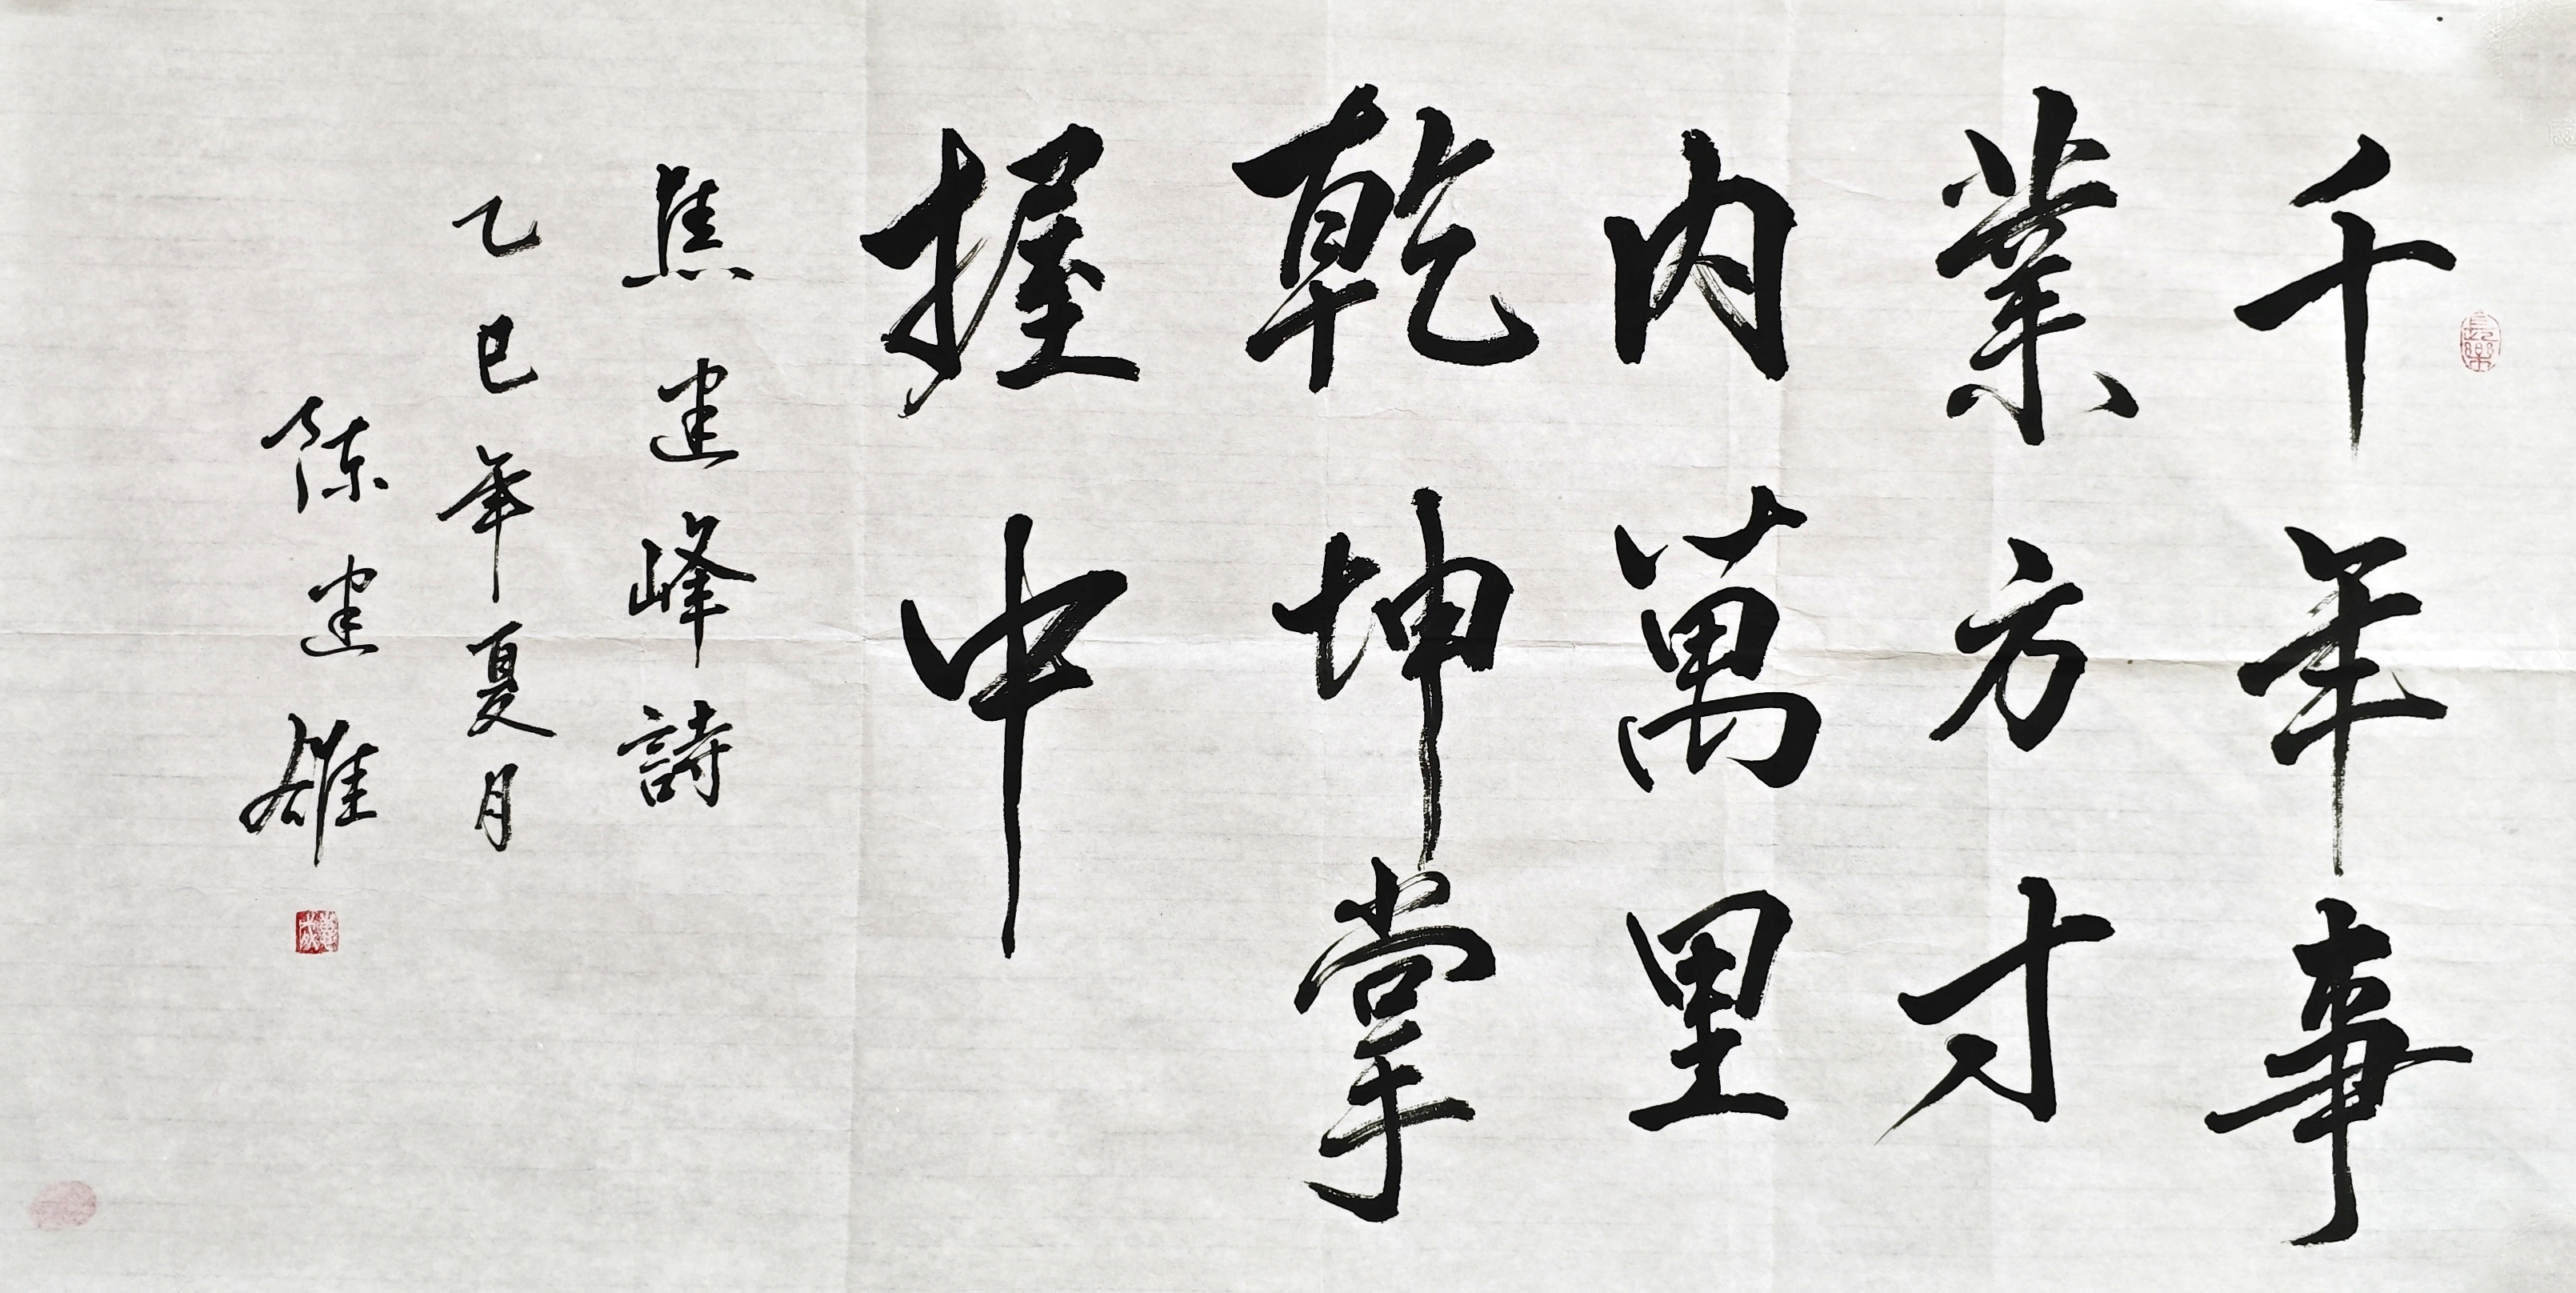 長樂
千年事
業方才
内萬里
乾坤掌
握中
焦建峰詩
乙巳年夏月
陈建雄